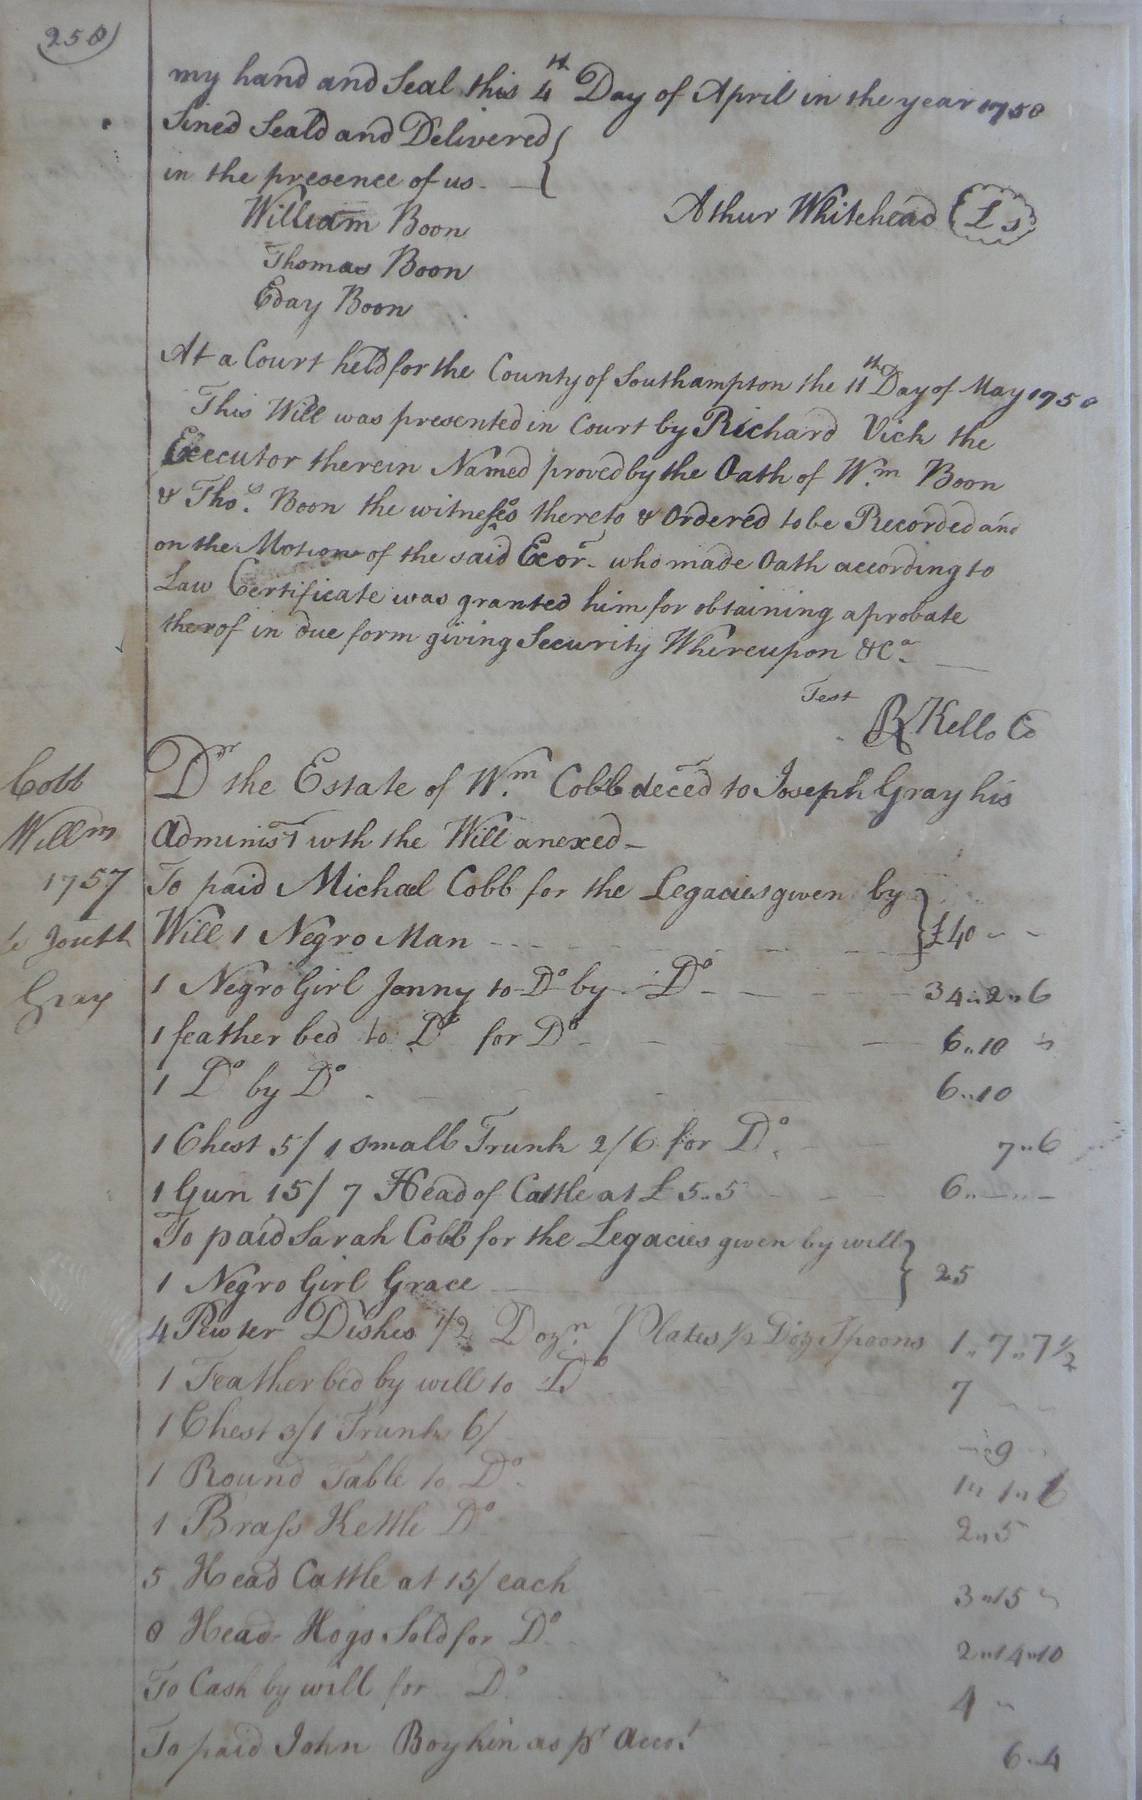 258
my hand and Seal this 4th Day of April in the year 1758
Sined Seald and Delivered
in the presence of us
William Boon
Arthur Whitehead Ls
Thomas Boon
Eday Boon
At a Court held for the County of Southampton the 11th Day of May 1758
This Will was presented in Court by Richard Vick the
Executor therein Named proved by the Oath of Wm. Boon
& Thos. Boon the witnesses thereto & Ordered to be Recorded and
on the Motion of the said Exor. who made Oath according to
Law Certificate was granted him for obtaining a probate
therof in due form giving Security Whereupon &Ca.
Test
R Kello
Cobb
Willm
1757
to
Gray
Dr the Estate of Wm. Cobb deced to Joseph Gray his
Administ wth the Will anexed
To paid Michael Cobb for the Legacies given by
Will 1 Negro Man £40 - -
1 Negro Girl Jenny to Do by Do 34 " 2 " 6
1 feather bed to Do for Do 6 " 10
1 Do by Do 6 " 10
1 Chest 5/ 1 small Trunk 2/6 for Do 7 " 6
1 Gun 15/ 7 Head of Cattle at £ 5 " 5 6 " - " -
To paid Sarah Cobb for the Legacies given by will
1 Negro Girl Grace 25
4 Pewter Dishes 1/2 Dozn. Plates 1/2 Doz Spoons 1 " 7 " 7 1/2
1 Feather bed by will to Do 7 - -
1 Chest 3/ 1 Trunk 6/ - " 9
1 Round Table to Do 1 " 1 " 6
1 Brass Kettle Do 2 " 5
5 Head Cattle at 15/ each 3 " 15
8 Head Hogs Sold for Do 2 " 14 " 10
To Cash by will for Do 4
To paid John Boykin as pr Acct. 6 " 4